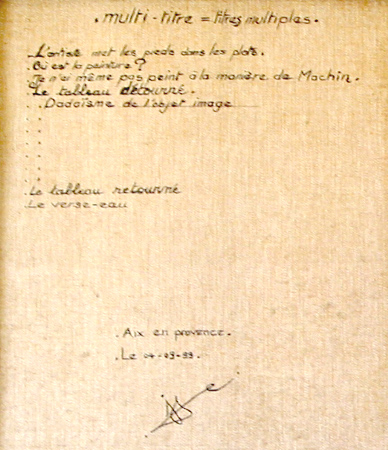 . multi-titre = titres multiples.
. L'artiste met les pieds dans les plats.
. Où est la peinture ?
. Je n'ai même pas peint à la manière de Machin.
. Le tableau détourné.
. . Dadaïsme de l'objet image
.
.
.
.
.
.
. Le tableau retourné
. Le verse-eau
. Aix en provence.
. Le 04-09-99.